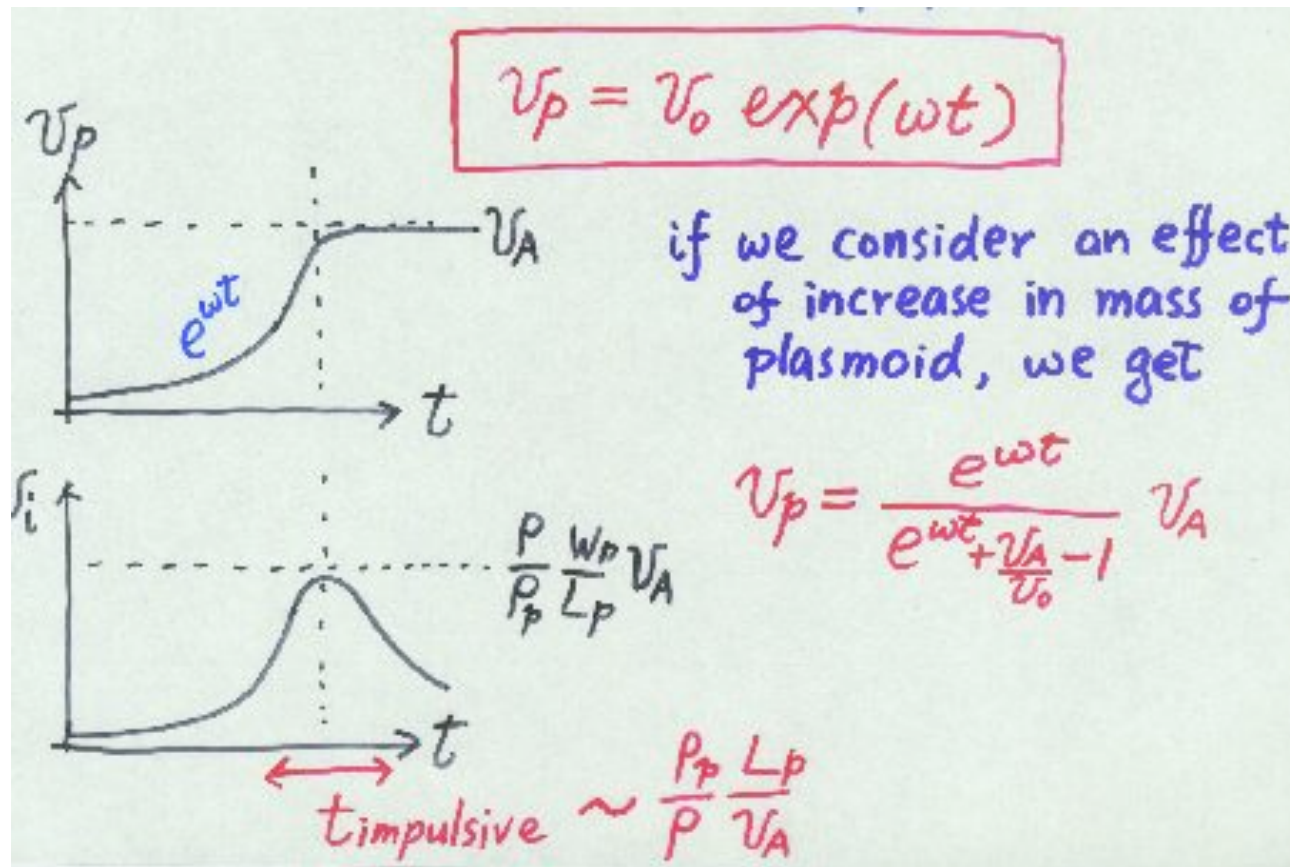 v_p = v_0 exp(ωt)
v_p
v_A
e^{ωt}
t
if we consider an effect
of increase in mass of
plasmoid, we get
v_p = \frac{e^{ωt}}{e^{ωt} + \frac{v_A}{v_0} - 1} v_A
v_i
\frac{ρ}{ρ_p} \frac{W_p}{L_p} v_A
t
t impulsive ~ \frac{ρ_p}{ρ} \frac{L_p}{v_A}